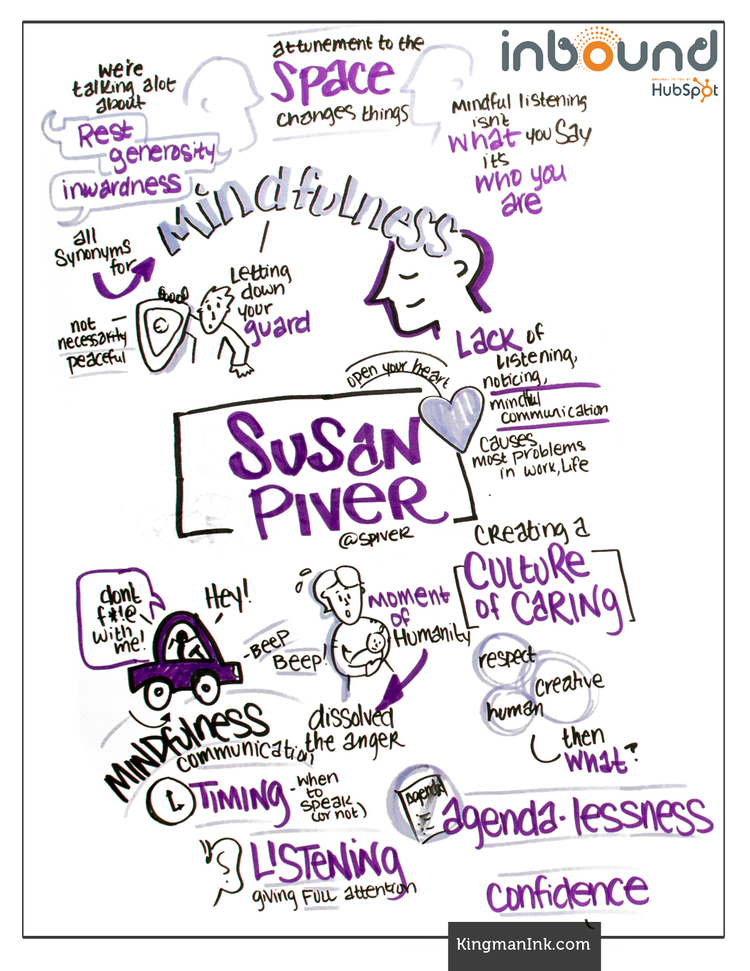 inbound
BROUGHT TO YOU BY
HubSpot
we're
talking alot
about
Rest
generosity
inwardness
attunement to the
Space
changes things
Mindful listening
isnt
what you say
it's
who you
are
Mindfulness
all
synonyms
for
Letting
down
your
guard
not
necessarily
peaceful
Lack of
Listening,
noticing,
mindful
communication
causes
most problems
in work, Life
open your heart
Susan
Piver
@spiver
creating a
Culture
of Caring
respect
creative
human
then
what?
dont
f*!@
with
me!
Hey!
-Beep
Beep!
Moment
of
Humanity
dissolved
the anger
Mindfulness
communication
Timing - when
to
speak
(or not)
Listening
giving full attention
agenda
agenda-lessness
confidence
KingmanInk.com